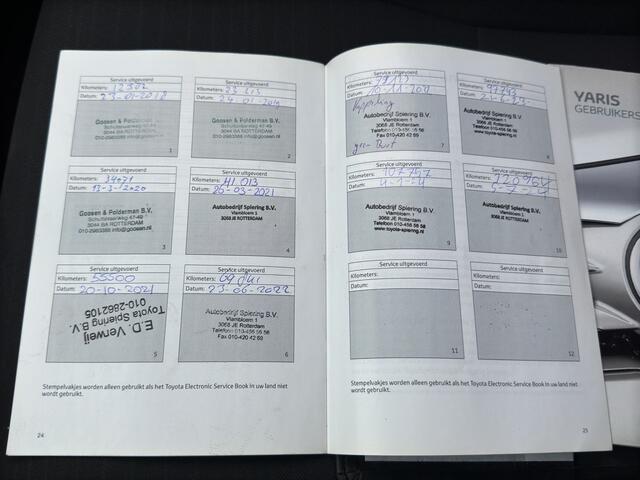 Service uitgevoerd
Kilometers: 12802
Datum: 23-01-2018
Goosen & Polderman B.V.
Schuttevaerweg 47-49
3044 BA ROTTERDAM
1
Service uitgevoerd
Kilometers:
Datum: 24-01-2019
Goosen & Polderman B.V.
Schuttevaerweg 47-49
3044 BA ROTTERDAM
2
Service uitgevoerd
Kilometers: 34071
Datum: 13-3-2020
Goosen & Polderman B.V.
Schuttevaerweg 47-49
3044 BA ROTTERDAM
3
Service uitgevoerd
Kilometers: 41 013
Datum: 26-03-2021
Autobedrijf Spiering B.V.
Vlambloem 1
3068 JE ROTTERDAM
4
Service uitgevoerd
Kilometers: 55500
Datum: 20-10-2021
E.D. Verweij
Toyota Spiering B.V.
010-2862105
5
Service uitgevoerd
Kilometers:
Datum: 23-06-2022
Autobedrijf Spiering B.V.
Vlambloem 1
3068 JE Rotterdam
Telefoon 010-455 58 58
Fax 010-420 42 69
6
Stempelvakjes worden alleen gebruikt als het Toyota Electronic Service Book in uw land niet
wordt gebruikt.
24
Service uitgevoerd
Kilometers:
Datum:
Autobedrijf Spiering B.V.
Vlambloem 1
3068 JE Rotterdam
Telefoon 010-455 58 58
Fax 010-420 42 69
7
Service uitgevoerd
Kilometers:
Datum:
Autobedrijf Spiering B.V.
Vlambloem 1
3068 JE ROTTERDAM
8
Service uitgevoerd
Kilometers: 107757
Datum: 4-1-24
Autobedrijf Spiering B.V.
Vlambloem 1
3068 JE Rotterdam
Telefoon 010-455 58 58
www.toyota-spiering.nl
9
Service uitgevoerd
Kilometers:
Datum:
Autobedrijf Spiering B.V.
Vlambloem 1
3068 JE ROTTERDAM
10
Service uitgevoerd
Kilometers:
Datum:
11
Service uitgevoerd
Kilometers:
Datum:
12
Stempelvakjes worden alleen gebruikt als het Toyota Electronic Service Book in uw land niet
wordt gebruikt.
25
YARIS